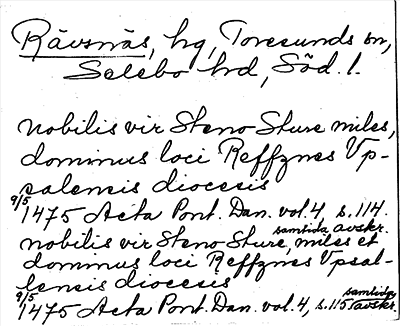 Rävsnäs, hg, Toresunds sn,
Selebo hd, Söd. l.
nobilis vir Steno Sture miles,
dominus loci Reffznes Vp-
salensis diocesis
9/5 1475 Acta Pont. Dan. vol. 4, s. 114.
samtida avskr.
nobilis vir Steno Sture, miles et
dominus loci Reffznes Vpsal-
lensis diocesis
9/5 1475 Acta Pont. Dan. vol. 4, s. 115 samtida avskr.